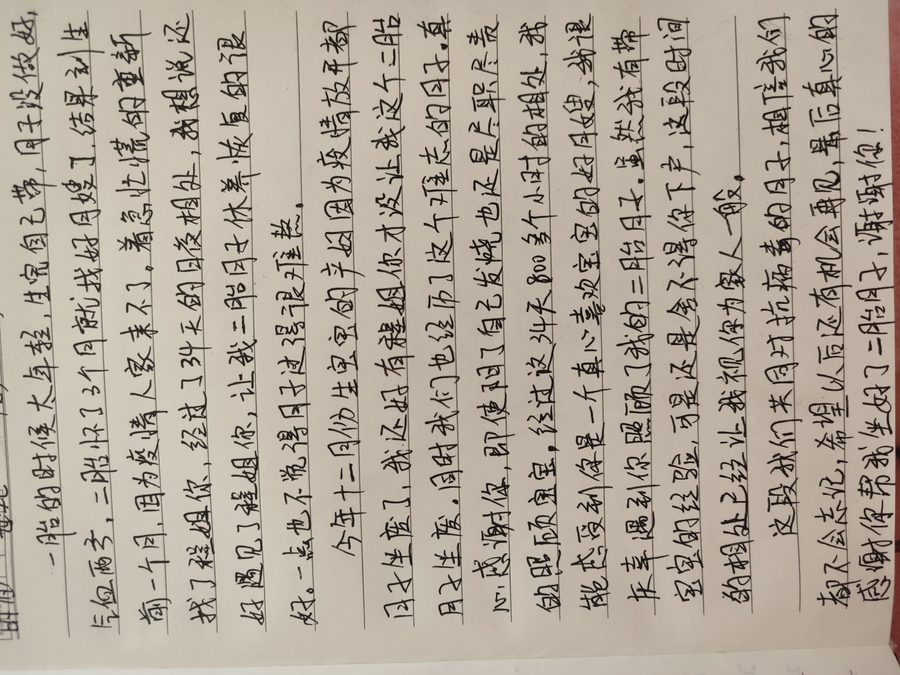 一胎的时候太年轻，生完自己带，月子没做好，
气血两亏，二胎怀了3个月就找好月嫂了，结果到生
前一个月，因为疫情人家来不了。着急忙慌的重新
找了程姐你，经过了34天的日夜相处，我想说还
好遇见了程姐你，让我二胎月子休养恢复的很
好。一点也不觉得月子过得很难熬。
今年十二月份生宝宝的辛好因为疫情放开都
月子坐废了，我还好有程姐你才没让我这个二胎
月子坐废。同时我们也经历了这个难忘的月子。真
心感谢你，即使阳了自己发烧也还是尽职尽责
的照顾宝宝，经过这34天800多个小时的相处，我
能感受到你是一个真心喜欢宝宝的好月嫂，我很
庆幸遇到你照顾了我的二胎月子。虽然我有带
宝宝的经验，可是还是舍不得你下户，这段时间
的相处已经让我视你为家人一般。
这段我们共同对抗病毒的月子，相信我们
都不会忘记，希望以后还有机会再见，最后真心的
感谢你帮我坐好了二胎月子，谢谢你！